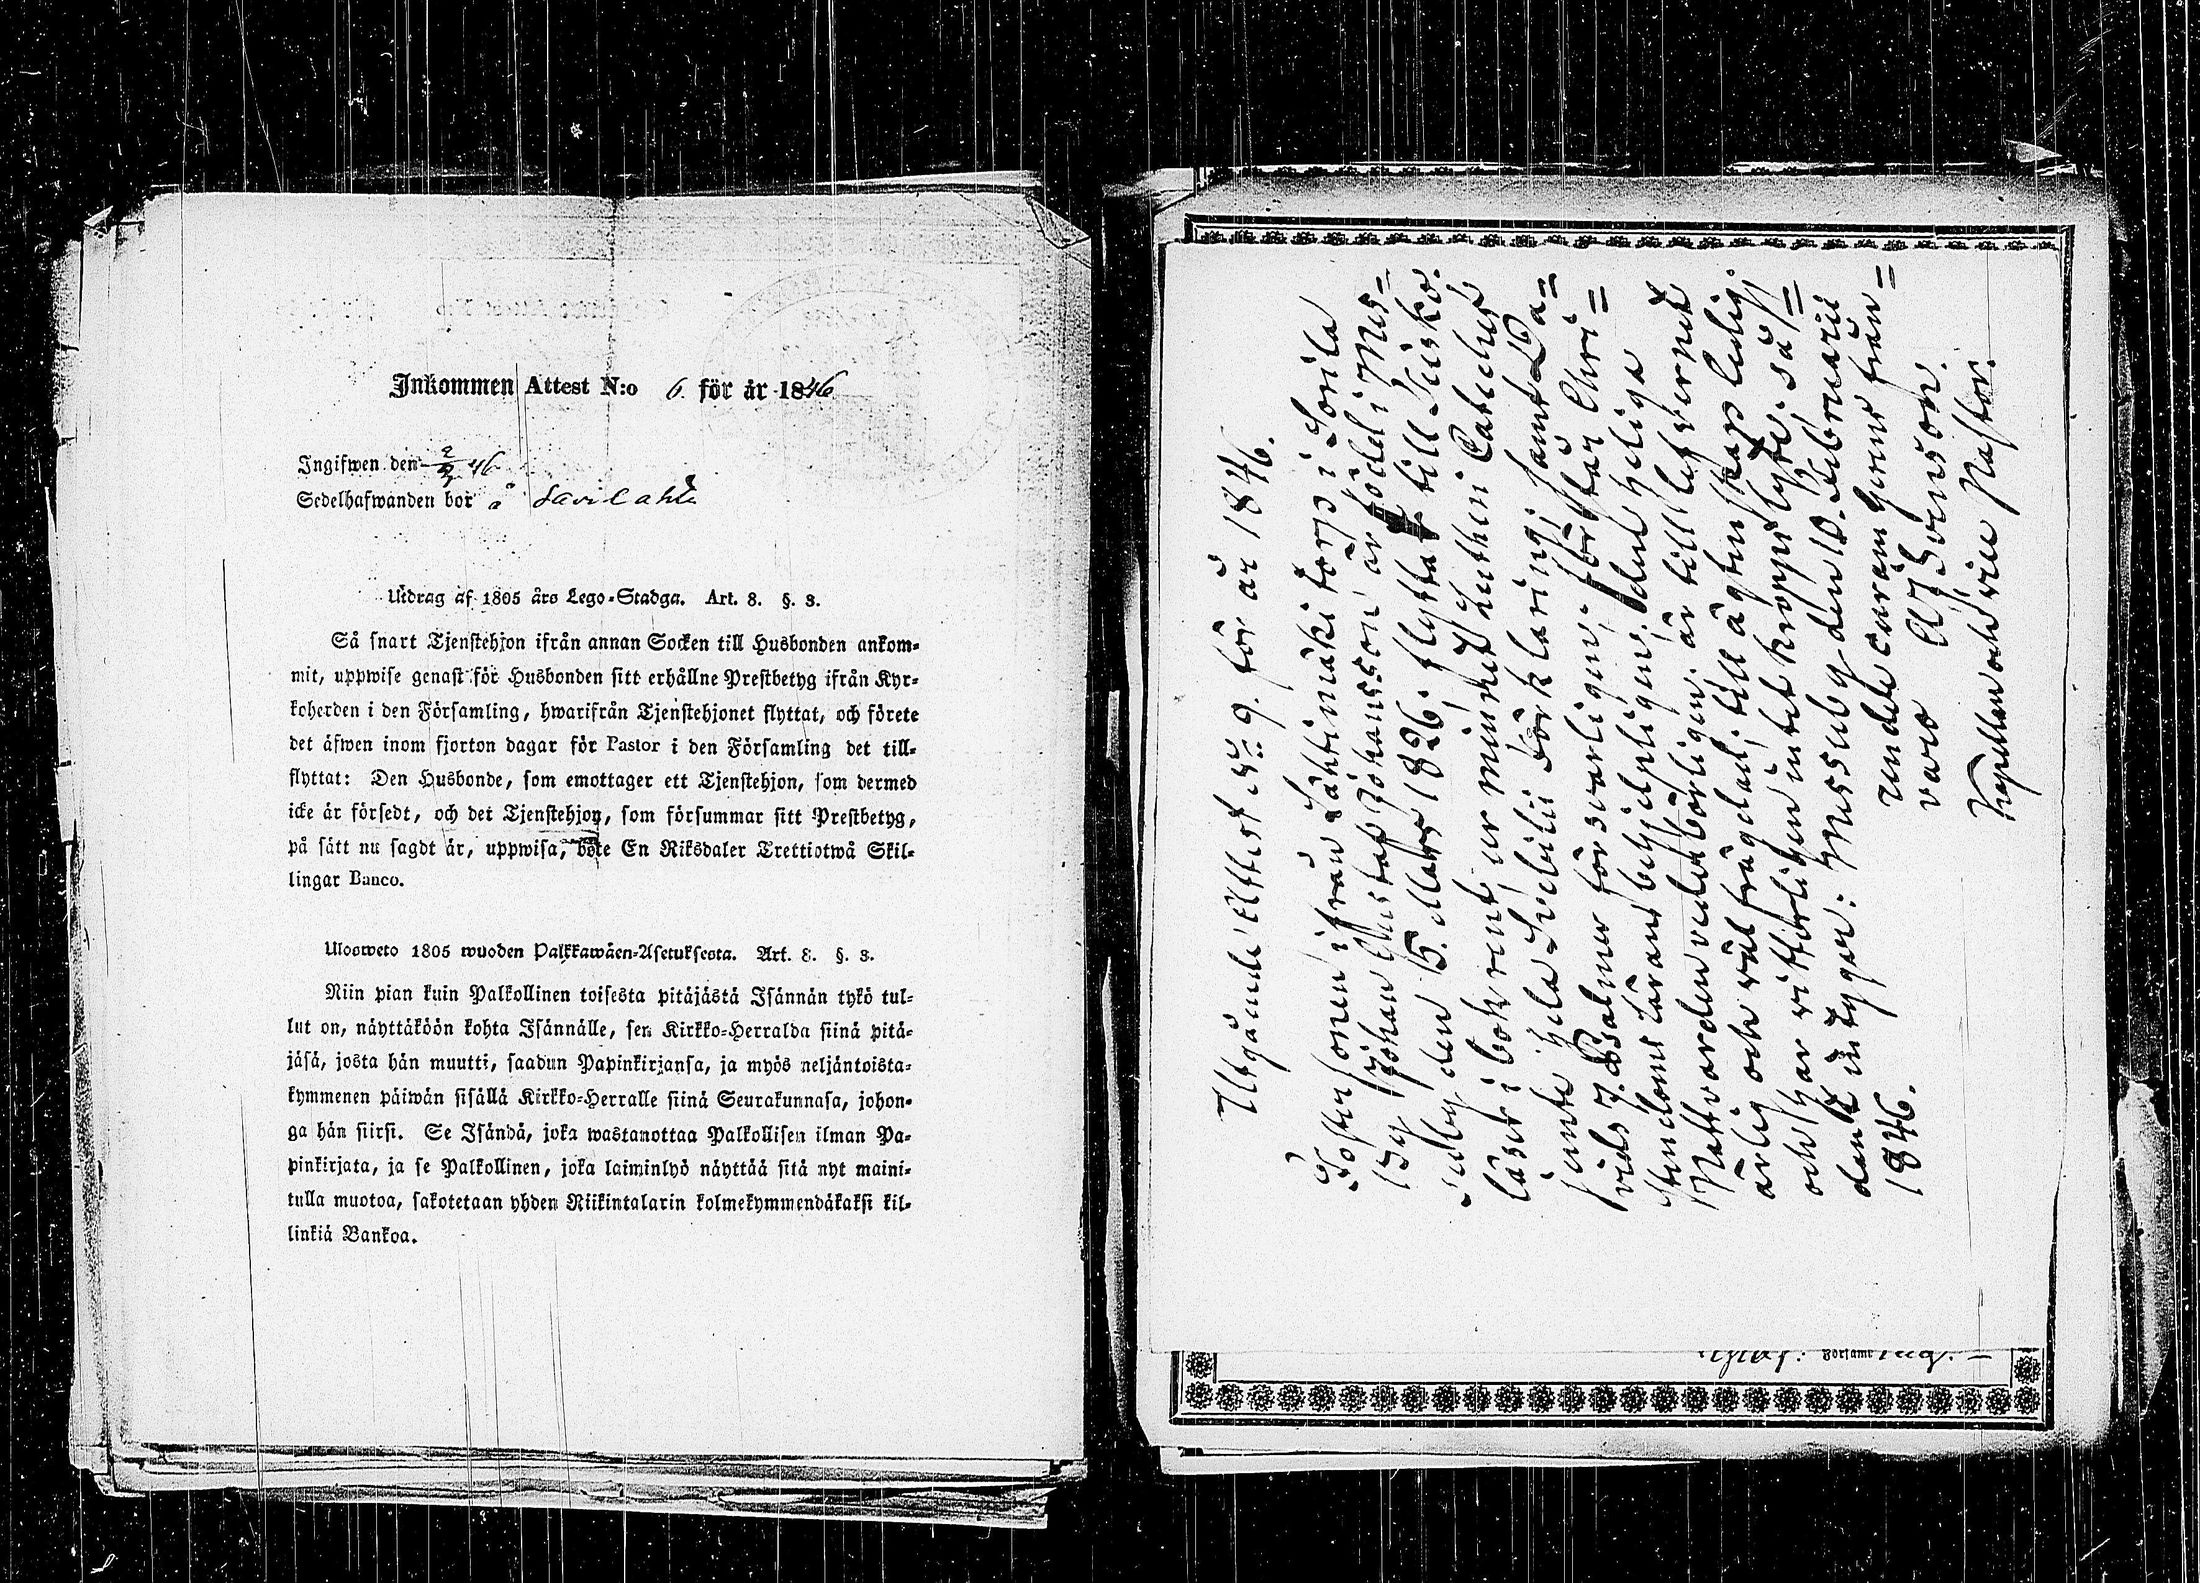 Inkommen Attest N:o 6 för år 1846
Ingifwen den 2/3 46
Sedelhafwanden bor å Savilahti
Utdrag af 1805 års Lego-Stadga. Art. 8. §. 3.
Så snart Tjenstehjon ifrån annan Socken till Husbonden ankom-
mit, uppwise genast för Husbonden sitt erhållne Prestbetyg ifrån Kyr-
koherden i den Församling, hwarifrån Tjenstehjonet flyttat, och förete
det äfwen inom fjorton dagar för Pastor i den Församling det till-
flyttat: Den Husbonde, som emottager ett Tjenstehjon, som dermed
icke är försedt, och det Tjenstehjon, som försummar sitt Prestbetyg,
på sätt nu sagdt är, uppwisa, böte En Riksdaler Trettiotwå Skil-
lingar Banco.
Ulosweto 1805 wuoden Palkkawäen-Asetuksesta. Art. 8. §. 3.
Niin pian kuin Palkollinen toisesta pitäjästä Isännän tykö tul-
lut on, näyttäköön kohta Isännälle, sen Kirkko-Herralda siinä pitä-
jäsä, josta hän muutti, saadun Papinkirjansa, ja myös neljäntoista-
kymmenen päiwän sisällä Kirkko-Herralle siinä Seurakunnasa, johon-
ga hän siirsi. Se Isändä, joka wastanottaa Palkollisen ilman Pa-
pinkirjata, ja se Palkollinen, joka laiminlyö näyttää sitä nyt maini-
tulla muotoa, sakotetaan yhden Riikintalarin kolmekymmendäkaksi kil-
linkiä Bankoa.
Utgående Attest No 9. för år 1846.
Fostersonen ifrån Lähtimäki torp i Sorila
By Johan Gustaf Johansson, är född i Mes-
suby den 15. Mars 1826; flyttat till Teisko;
läser i bok rent, ur minnet Lutheri Catechus
jemte hela Svebilii Förklaring, samt Da-
vids 7. Psalmer försvarligen; förstår Chri-
stendoms läran behjelpligen; den heliga
Nattvarden vederbörligen; är till lefvernet
ärlig och väl frägdad; till ägtenskap ledig
och har rätterligen intet kroppslyte; så
dant intygar: Messuby den 10. Februarii
1846.
Församling.